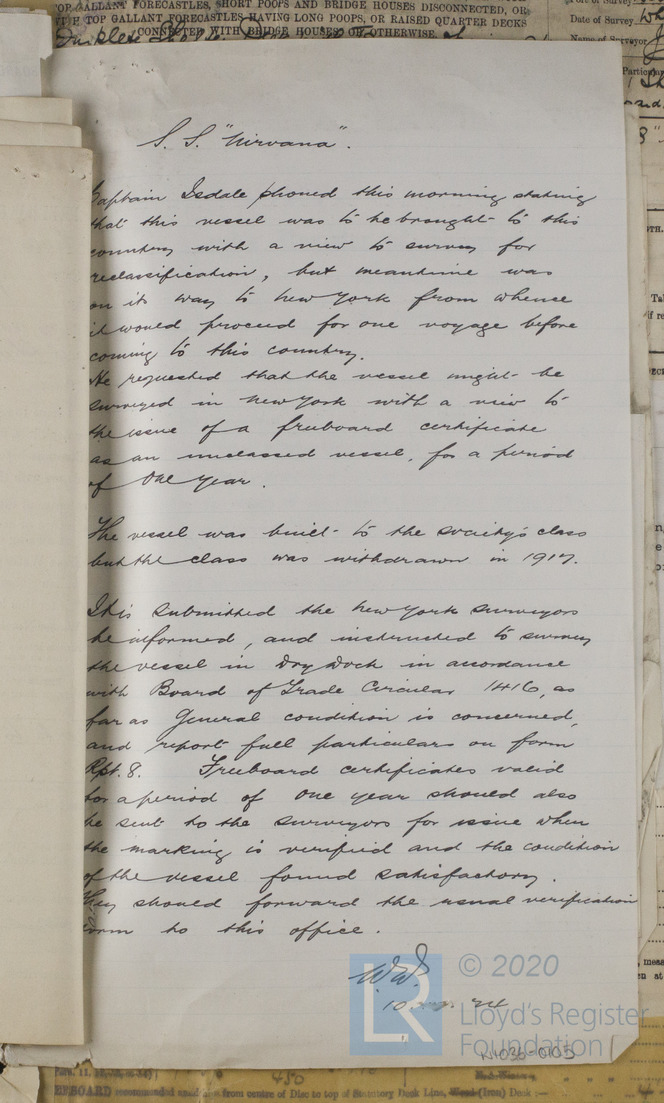 TOP GALLANT FORECASTLES, SHORT POOPS AND BRIDGE HOUSES DISCONNECTED, OR
TOP GALLANT FORECASTLES HAVING LONG POOPS, OR RAISED QUARTER DECKS
CONNECTED WITH BRIDGE HOUSES OR OTHERWISE.
Date of Survey
Name of Surveyor
Particular
S. S. "Nirvana".
Captain Isdale phoned this morning stating
that this vessel was to be brought to this
country with a view to survey for
reclassification, but meantime was
on it way to New York from whence
it would proceed for one voyage before
coming to this country.
He requested that the vessel might be
surveyed in New York with a view to
the issue of a freeboard certificate
as an unclassed vessel, for a period
of one year.
The vessel was built to the Society's class
but the class was withdrawn in 1917.
It is submitted the New York Surveyors
be informed, and instructed to survey
the vessel in Dry Dock in accordance
with Board of Trade Circular 1416, as
far as General condition is concerned,
and report full particulars on form
Rpt. 8. Freeboard certificates valid
for a period of one year should also
be sent to the Surveyors for issue when
the marking is verified and the condition
of the vessel found satisfactory.
They should forward the usual verification
form to this office.
W.W.
10
24
LR
© 2020
Lloyd's Register
Foundation
450
FREEBOARD recommended
from centre of Disc to top of Statutory Deck Line, Wood (Iron) Deck :—